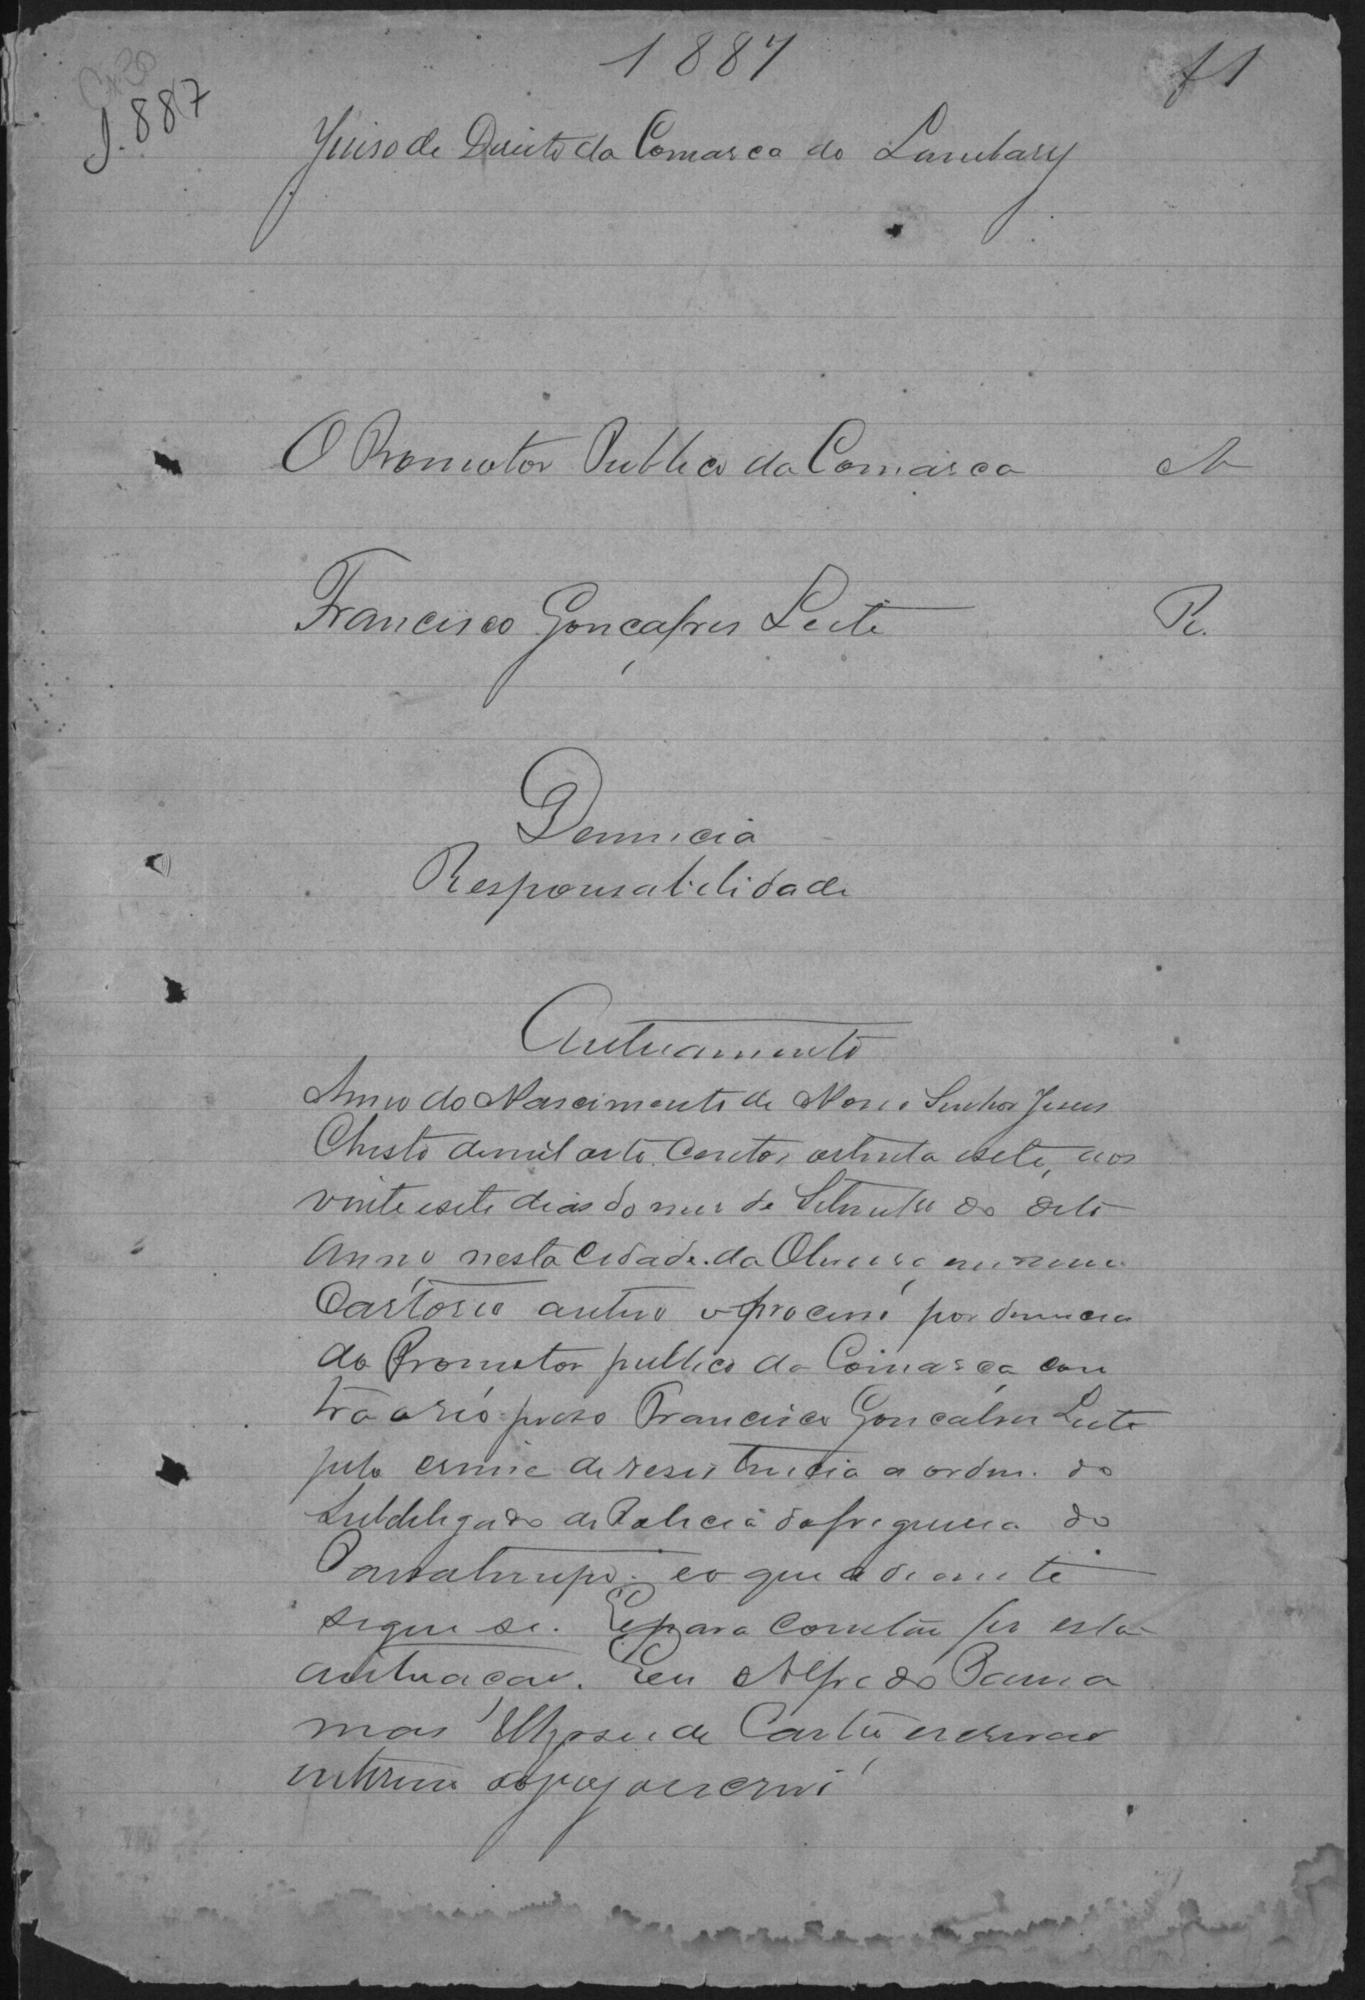 1887
f 1
Cx 20
J. 887
Juiso de Direito da Comarca do Lambary
O Promotor Publico da Comarca A
Francisco Gonçalves Leite R.
Denuncia
Responsabilidade
Autuamento
Anno do Nascimento de Nosso Senhor Jesus
Christo de mil oito centos oitenta e sete, aos
vinte e sete dias do mes de Setembro do dito
Anno nesta Cidade da
Cartorio autuo o processo por denuncia
do Promotor publico da Comarca con
tra o réo preso Francisco Gonçalves Leite
pelo crime de resistencia a ordem do
Subdelegado de Policia da freguesia do
e o que adiante
segue se. E para constar fis esta
autuação. Eu Alfredo
mas Ulysses de Castro escrivão
interino do jury o escrevi